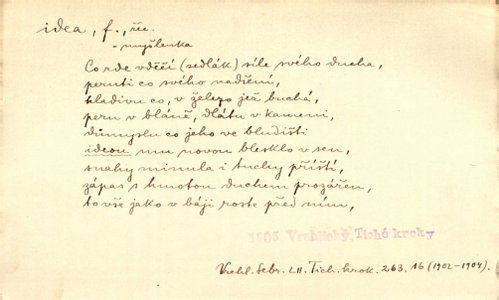 idea, f., řec.
= myšlenka
Co zde vděčí (sedlák) síle svého ducha,
peruti co svého nadšení,
kladivu co, v železo jež buchá,
peru v bláně, dlátu v kameni,
důmyslu co jeho ve bludišti
ideou mu novou blesklo v sen,
snahy minula i tuchy příští,
zápas s hmotou duchem prozářen,
to vše jako v báji roste před ním,
1905 Vrchlický, Tiché kroky
Vrchl. Sebr. LII. Tich. krok. 263. 16 (1902-1904).